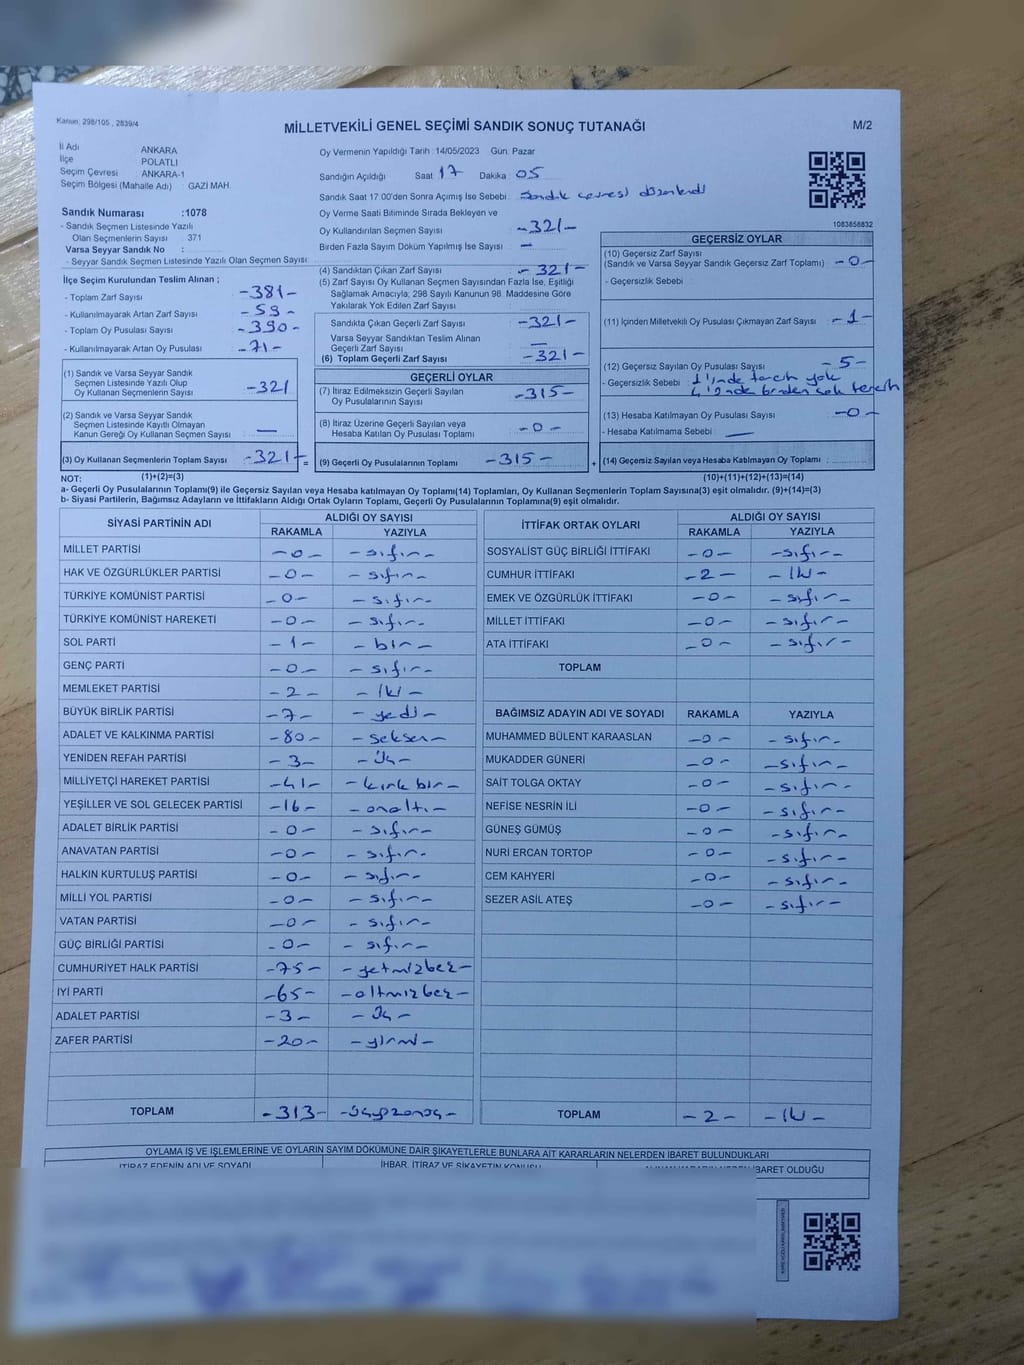 Kanun: 298/105, 2839/4
MİLLETVEKİLİ GENEL SEÇİMİ SANDIK SONUÇ TUTANAĞI
M/2
İl Adı : ANKARA
İlçe : POLATLI
Seçim Çevresi : ANKARA-1
Seçim Bölgesi (Mahalle Adı) : GAZİ MAH.
Sandık Numarası :1078
- Sandık Seçmen Listesinde Yazılı
Olan Seçmenlerin Sayısı : 371
Varsa Seyyar Sandık No :
- Seyyar Sandık Seçmen Listesinde Yazılı Olan Seçmen Sayısı:
İlçe Seçim Kurulundan Teslim Alınan ;
- Toplam Zarf Sayısı -381-
- Kullanılmayarak Artan Zarf Sayısı -59-
- Toplam Oy Pusulası Sayısı -390-
- Kullanılmayarak Artan Oy Pusulası -71-
(1) Sandık ve Varsa Seyyar Sandık
Seçmen Listesinde Yazılı Olup
Oy Kullanan Seçmenlerin Sayısı -321
(2) Sandık ve Varsa Seyyar Sandık
Seçmen Listesinde Kayıtlı Olmayan
Kanun Gereği Oy Kullanan Seçmen Sayısı —
(3) Oy Kullanan Seçmenlerin Toplam Sayısı -321-
Oy Vermenin Yapıldığı Tarih :14/05/2023 Gün: Pazar
Sandığın Açıldığı Saat 17 Dakika 05
Sandık Saat 17.00'den Sonra Açımış İse Sebebi: Sandık çevresi düzenlendi
Oy Verme Saati Bitiminde Sırada Bekleyen ve
Oy Kullandırılan Seçmen Sayısı -321-
Birden Fazla Sayım Döküm Yapılmış İse Sayısı : —
(4) Sandıktan Çıkan Zarf Sayısı - 321-
(5) Zarf Sayısı Oy Kullanan Seçmen Sayısından Fazla İse, Eşitliği
Sağlamak Amacıyla; 298 Sayılı Kanunun 98. Maddesine Göre
Yakılarak Yok Edilen Zarf Sayısı
Sandıkta Çıkan Geçerli Zarf Sayısı -321-
Varsa Seyyar Sandıktan Teslim Alınan
Geçerli Zarf Sayısı —
(6) Toplam Geçerli Zarf Sayısı -321-
GEÇERLİ OYLAR
(7) İtiraz Edilmeksizin Geçerli Sayılan
Oy Pusulalarının Sayısı -315-
(8) İtiraz Üzerine Geçerli Sayılan veya
Hesaba Katılan Oy Pusulası Toplamı -0-
= (9) Geçerli Oy Pusulalarının Toplamı -315-
1083858832
GEÇERSİZ OYLAR
(10) Geçersiz Zarf Sayısı
(Sandık ve Varsa Seyyar Sandık Geçersiz Zarf Toplamı) -0-
- Geçersizlik Sebebi :
(11) İçinden Milletvekili Oy Pusulası Çıkmayan Zarf Sayısı -1-
(12) Geçersiz Sayılan Oy Pusulası Sayısı -5-
- Geçersizlik Sebebi : 1'inde tercih yok
4'ünde birden çok tercih
(13) Hesaba Katılmayan Oy Pusulası Sayısı -0-
- Hesaba Katılmama Sebebi : —
+ (14) Geçersiz Sayılan veya Hesaba Katılmayan Oy Toplamı :
NOT: (1)+(2)=(3) (10)+(11)+(12)+(13)=(14)
a- Geçerli Oy Pusulalarının Toplamı(9) ile Geçersiz Sayılan veya Hesaba katılmayan Oy Toplamı(14) Toplamları, Oy Kullanan Seçmenlerin Toplam Sayısına(3) eşit olmalıdır. (9)+(14)=(3)
b- Siyasi Partilerin, Bağımsız Adayların ve İttifakların Aldığı Ortak Oyların Toplamı, Geçerli Oy Pusulalarının Toplamına(9) eşit olmalıdır.
SİYASİ PARTİNİN ADI ALDIĞI OY SAYISI
RAKAMLA YAZIYLA
MİLLET PARTİSİ -0- -sıfır-
HAK VE ÖZGÜRLÜKLER PARTİSİ -0- -sıfır-
TÜRKİYE KOMÜNİST PARTİSİ -0- -sıfır-
TÜRKİYE KOMÜNİST HAREKETİ -0- -sıfır-
SOL PARTİ -1- -bir-
GENÇ PARTİ -0- -sıfır-
MEMLEKET PARTİSİ -2- -iki-
BÜYÜK BİRLİK PARTİSİ -7- -yedi-
ADALET VE KALKINMA PARTİSİ -80- -seksen-
YENİDEN REFAH PARTİSİ -3- -üç-
MİLLİYETÇİ HAREKET PARTİSİ -41- -kırk bir-
YEŞİLLER VE SOL GELECEK PARTİSİ -16- -onaltı-
ADALET BİRLİK PARTİSİ -0- -sıfır-
ANAVATAN PARTİSİ -0- -sıfır-
HALKIN KURTULUŞ PARTİSİ -0- -sıfır-
MİLLİ YOL PARTİSİ -0- -sıfır-
VATAN PARTİSİ -0- -sıfır-
GÜÇ BİRLİĞİ PARTİSİ -0- -sıfır-
CUMHURİYET HALK PARTİSİ -75- -yetmişbeş-
İYİ PARTİ -65- -altmışbeş-
ADALET PARTİSİ -3- -üç-
ZAFER PARTİSİ -20- -yirmi-
TOPLAM -313- -üçyüzonüç-
İTTİFAK ORTAK OYLARI ALDIĞI OY SAYISI
RAKAMLA YAZIYLA
SOSYALİST GÜÇ BİRLİĞİ İTTİFAKI -0- -sıfır-
CUMHUR İTTİFAKI -2- -iki-
EMEK VE ÖZGÜRLÜK İTTİFAKI -0- -sıfır-
MİLLET İTTİFAKI -0- -sıfır-
ATA İTTİFAKI -0- -sıfır-
TOPLAM
BAĞIMSIZ ADAYIN ADI VE SOYADI RAKAMLA YAZIYLA
MUHAMMED BÜLENT KARAASLAN -0- -sıfır-
MUKADDER GÜNERİ -0- -sıfır-
SAİT TOLGA OKTAY -0- -sıfır-
NEFİSE NESRİN İLİ -0- -sıfır-
GÜNEŞ GÜMÜŞ -0- -sıfır-
NURİ ERCAN TORTOP -0- -sıfır-
CEM KAHYERİ -0- -sıfır-
SEZER ASİL ATEŞ -0- -sıfır-
TOPLAM -2- -iki-
OYLAMA İŞ VE İŞLEMLERİNE VE OYLARIN SAYIM DÖKÜMÜNE DAİR ŞİKAYETLERLE BUNLARA AİT KARARLARIN NELERDEN İBARET BULUNDUKLARI
İTİRAZ EDENİN ADI VE SOYADI İHBAR, İTİRAZ VE ŞİKAYETİN KONUSU İBARET OLDUĞU